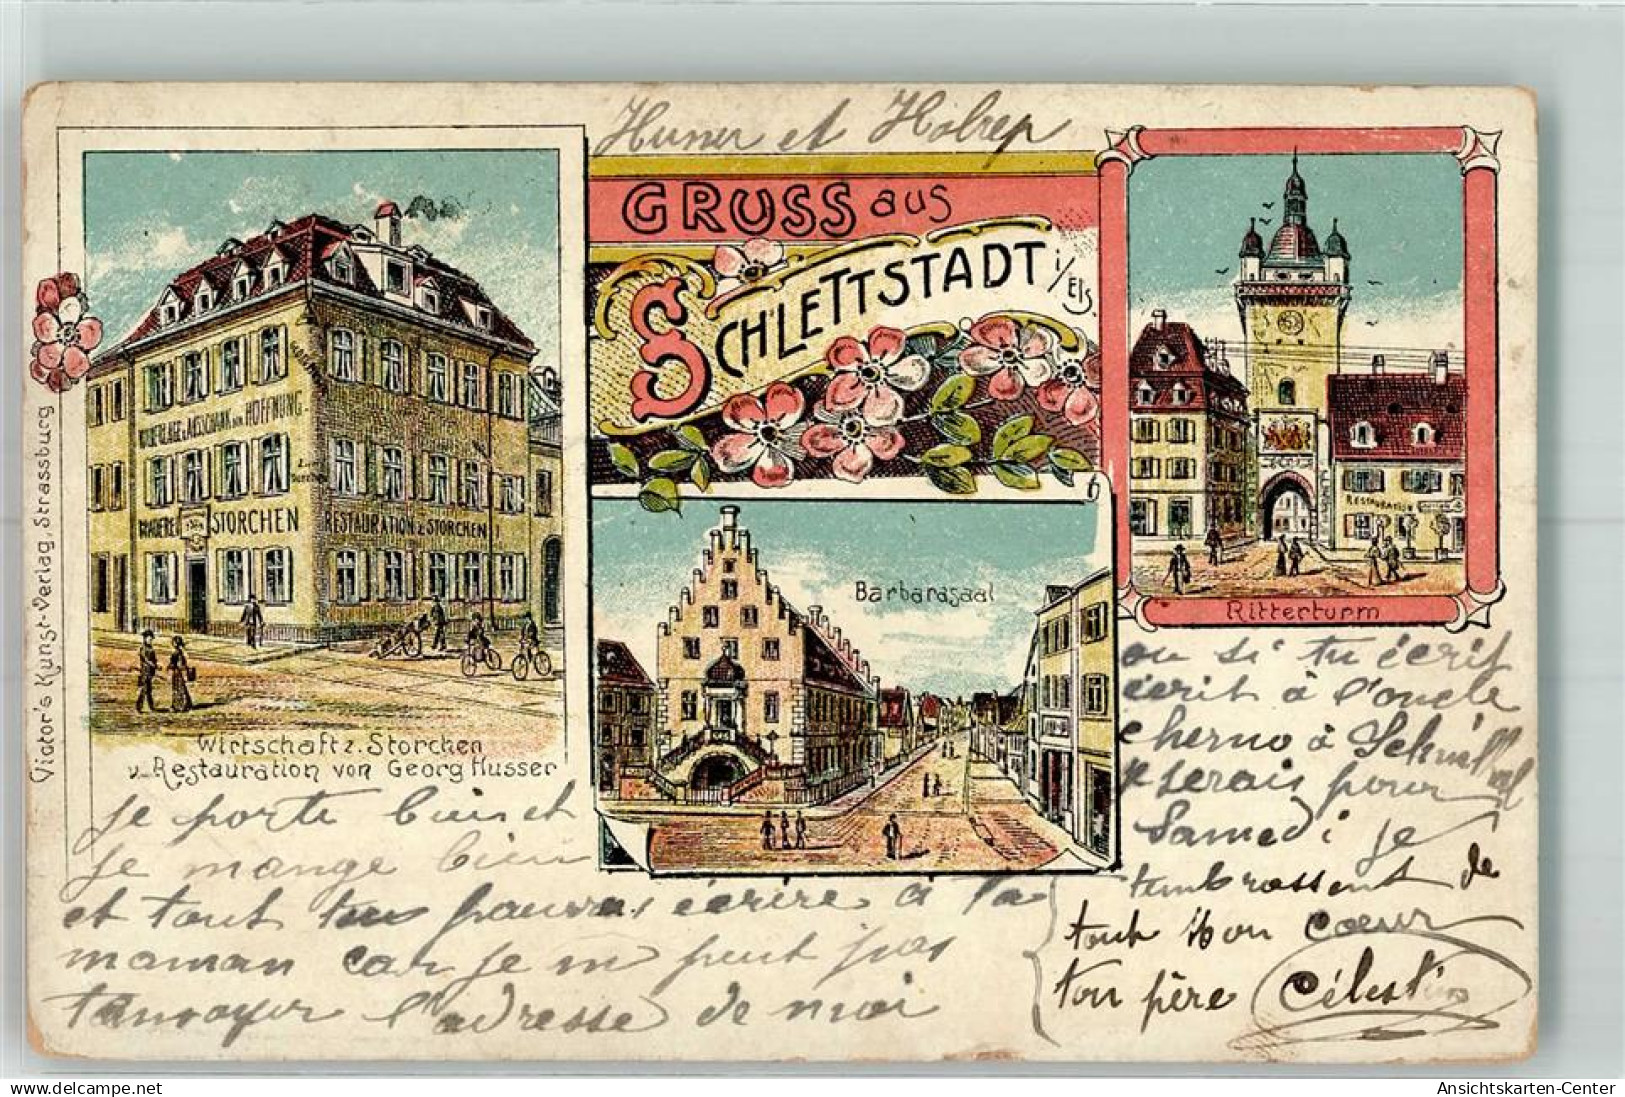 et
GRUSS aus
SCHLETTSTADT i/Els.
NIEDERLAGE & AUSSCHANK HOFFNUNG
BRAUEREI STORCHEN
RESTAURATION Z. STORCHEN
Wirtschaft z. Storchen
u. Restauration von Georg Husser
Viator's Kunst-Verlag, Strassburg
Barbarasaal
RESTAURATION
Ritterturm
je porte bien et
je mange bien
et tout tu pourras écrire à ta
maman car je m peut pas
t'anvoyer l'adresse de moi
ou si tu écrit
écrit à l'oncle
à
je serais pour
Samedi je
t'embrassent de
tout mon coeur
ton père Célestin
Ansichtskarten-Center